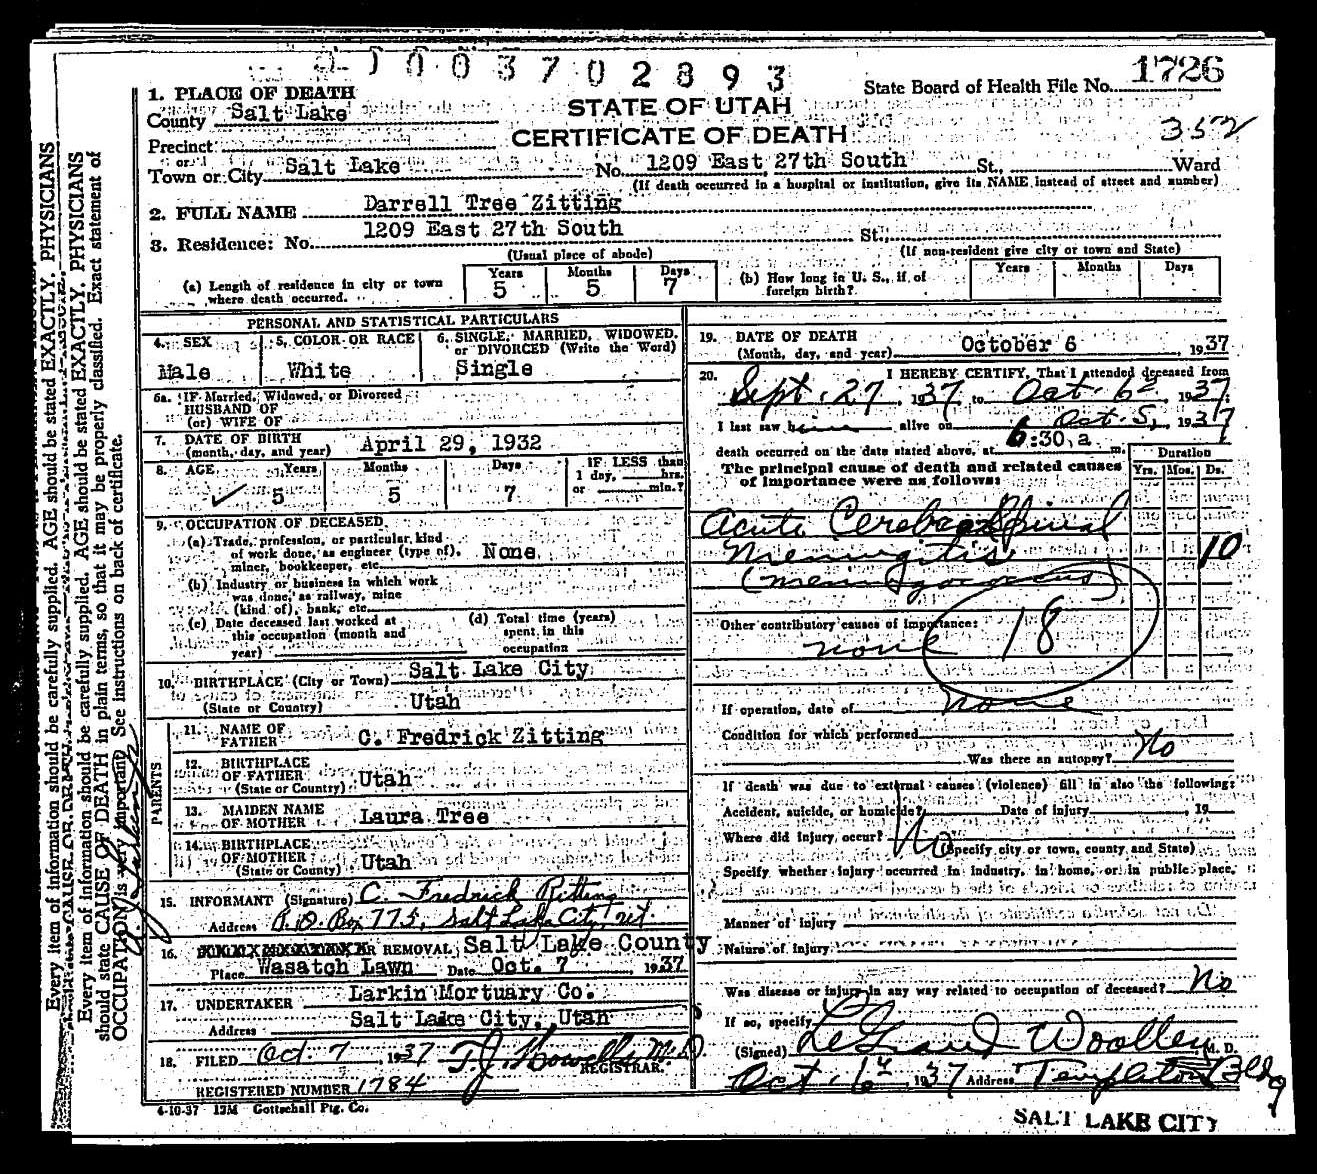 003702893
1726
State Board of Health File No.
1. PLACE OF DEATH
STATE OF UTAH
County Salt Lake
CERTIFICATE OF DEATH
352
Precinct
or
Town or City Salt Lake No. 1209 East 27th South St., Ward
(If death occurred in a hospital or institution, give its NAME instead of street and number)
2. FULL NAME Darrell Tree Zitting
3. Residence: No. 1209 East 27th South St.,
(Usual place of abode) (If non-resident give city or town and State)
(a) Length of residence in city or town where death occurred. Years 5 Months 5 Days 7 (b) How long in U. S., if of foreign birth? Years Months Days
PERSONAL AND STATISTICAL PARTICULARS
4. SEX 5. COLOR OR RACE 6. SINGLE, MARRIED, WIDOWED, or DIVORCED (Write the Word)
Male White Single
6a. IF Married, Widowed, or Divorced
HUSBAND OF
(or) WIFE OF
7. DATE OF BIRTH
(month, day, and year) April 29, 1932
8. AGE Years Months Days IF LESS than
1 day, hrs.
or min.?
5 5 7
9. OCCUPATION OF DECEASED
(a) Trade, profession, or particular kind
of work done, as engineer (type of), None
miner, bookkeeper, etc.
(b) Industry or business in which work
was done, as railway, mine
(kind of), bank, etc.
(c) Date deceased last worked at
this occupation (month and
year)
(d) Total time (years)
spent in this
occupation
10. BIRTHPLACE (City or Town) Salt Lake City
(State or Country) Utah
PARENTS
11. NAME OF
FATHER C. Fredrick Zitting
12. BIRTHPLACE
OF FATHER Utah
(State or Country)
13. MAIDEN NAME
OF MOTHER Laura Tree
14. BIRTHPLACE
OF MOTHER
(State or Country) Utah
15. INFORMANT (Signature) C. Fredrick Zitting
Address P. O. Box 775, Salt Lake City, Ut.
16. OR REMOVAL, Salt Lake County
Place Wasatch Lawn Date Oct. 7, 1937
17. UNDERTAKER Larkin Mortuary Co.
Address Salt Lake City, Utah
18. FILED Oct. 7, 1937 T. J. Howells, M.D.
REGISTRAR.
REGISTERED NUMBER 1784
4-10-37 12M Gottschall Ptg. Co.
19. DATE OF DEATH
(Month, day, and year) October 6, 1937
20. I HEREBY CERTIFY, That I attended deceased from
Sept. 27, 1937 to Oct. 6, 1937
I last saw him alive on Oct. 5, 1937
death occurred on the date stated above, at 6:30 a m.
The principal cause of death and related causes
of importance were as follows:
Duration
Yrs. Mos. Ds.
Acute Cerebro Spinal
Meningitis 10
(meningococcus)
18
Other contributory causes of importance:
none
If operation, date of none
Condition for which performed
Was there an autopsy? No
If death was due to external causes (violence) fill in also the following:
Accident, suicide, or homicide? Date of injury, 19
Where did injury occur? No
(Specify city or town, county, and State)
Specify whether injury occurred in industry, in home, or in public place,
Manner of injury
Nature of injury
Was disease or injury in any way related to occupation of deceased? No
If so, specify
(Signed) LeGrand Woolley M. D.
Oct. 6, 1937 Address Templeton Bldg
SALT LAKE CITY
Every item of information should be carefully supplied. AGE should be stated EXACTLY. PHYSICIANS
Every item of information should be carefully supplied. AGE should be stated EXACTLY. PHYSICIANS
should state CAUSE OF DEATH in plain terms, so that it may be properly classified. Exact statement of
OCCUPATION is very important. See instructions on back of certificate.